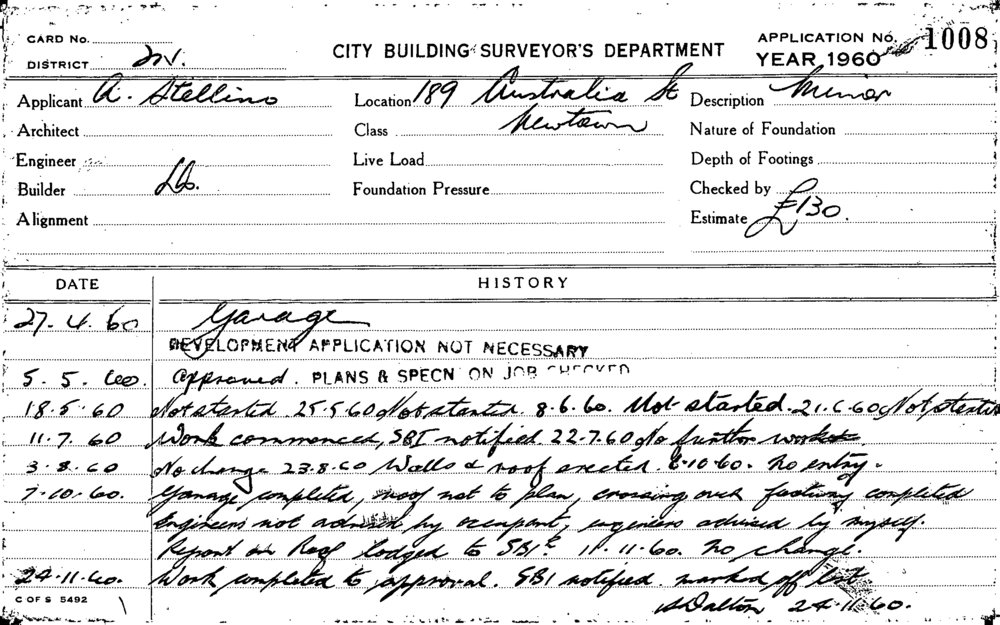 CARD No.
DISTRICT
CITY BUILDING SURVEYOR'S DEPARTMENT
APPLICATION No. 1008
YEAR 1960
Applicant A. Stellino
Location 189 Australia St
Newtown
Description Minor
Architect
Class
Nature of Foundation
Engineer
Live Load
Depth of Footings
Builder
Foundation Pressure
Checked by
Alignment
Estimate £130.
DATE HISTORY
27.4.60 Garage
DEVELOPMENT APPLICATION NOT NECESSARY
5.5.60. Approved. PLANS & SPECN ON JOB CHECKED
18.5.60 Not started. 25.5.60 Not started. 8.6.60. Not started. 21.6.60 Not started
11.7.60 Work commenced, SBI notified. 22.7.60 No further work
3.8.60 No change. 23.8.60 Walls & roof erected. 8.10.60. No entry.
7.10.60. Garage completed, roof not to plan, crossing over footway completed
Engineers not advised by occupant, engineers advised by myself.
Report on Roof lodged to SBI 11.11.60. No change.
24.11.60. Work completed to approval. SBI notified. marked off list
Dalton 24.11.60.
C OF S 5492